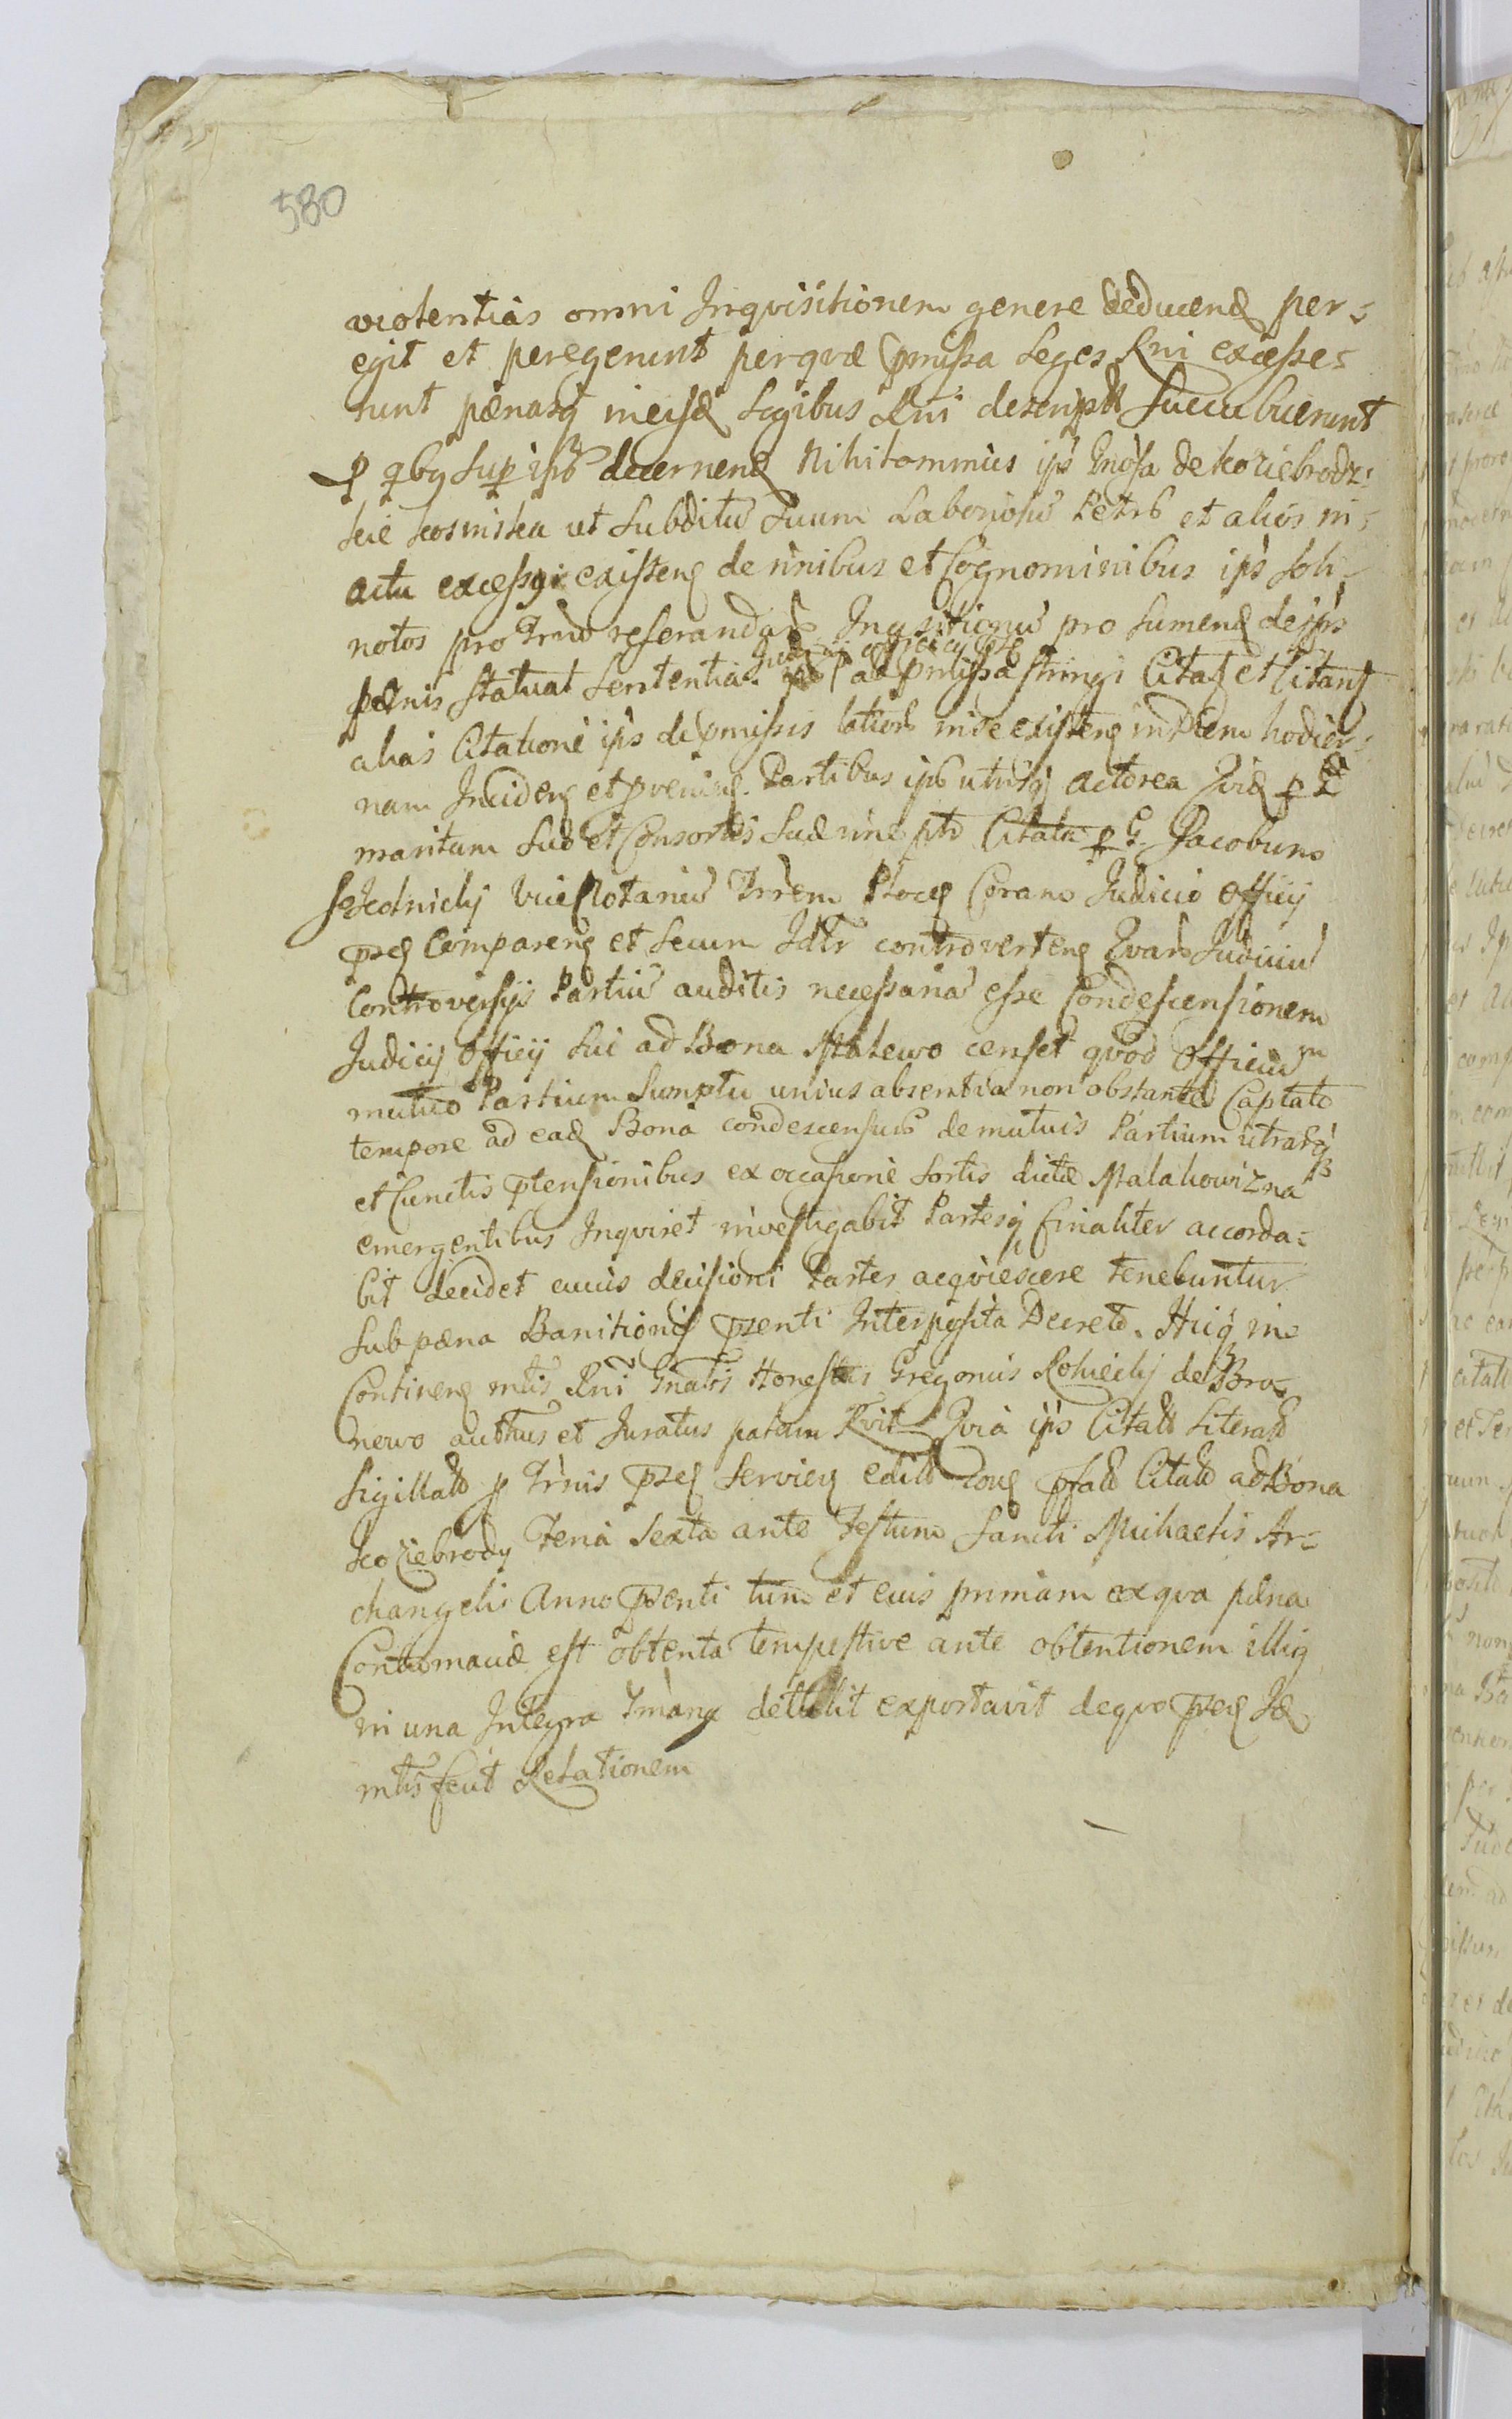 580
violentias omni Inqvisitionem genere deducend per-
egit et peregerunt perqvæ pmissa Leges Rni excesse-
runt pænasq ineisd Legibus Rni descriptt Succubuerunt
p qbg sup ipso decernend Nihilominus ips Gnosa de Koziebrodz-
kie Kosinska ut Subditu Suum Laboriosu Petro et alios in
actu excessy existeng de nnibus et Cognominibus ips
notos pro Trno reserandam Inqsitionu pro Sumend deips
pænis Statuat Sententia. ad pmissa stringi Citat et Citant
alias Citatione ips de pmissis latiore inde existeng in Diem hodier-
nam Incideng et pveniend. Partibus ips utrisq actorea Qvid p
maritum Suo et Consortis Suæ nne pto Citata p G. Jacobum
Vice Notariu Trrem Plocen Coram Judicio Officy
psq Compareng et Secum Idtr controverteng Qvare Judiciu
Controversys Partiu auditis necessaria esse Condescensionem
Judicij Officij Sui ad Bona Malewo censet qvod Officium
mutuo Partium Sumptu unius absentia non obstante Captato
tempore ad ead Bona condescensuro de mutuis Partium utrarq
et Cunctis ptensionibus ex occasione Sortis dictæ Malahowizna
emergentibus Inqviret investigabit Partesq finaliter accorda-
bit decidet cuius decisioni Partes acqviescere tenebuntur
Sub pæna Banitionis psenti Interposita Decreto. Huiq in
Contineng mtis Rni Gnalis Honestus Gregorius de Bro-
newo authus et Juratus palam Rvit Qvia ips Citatt Literatt
Sigillatt p Trnis psq editt pfatt Citatt ad Bona
Koziebrody Feria Sexta ante Festum Sancti Michaelis Ar-
changeli Anno psenti tum et eius primam exqva pæna
Contumaciæ est obtenta tempestive ante obtentionem illig
in una Integra detulit exportavit deqvo pseq Id
mtis fecit Relationem